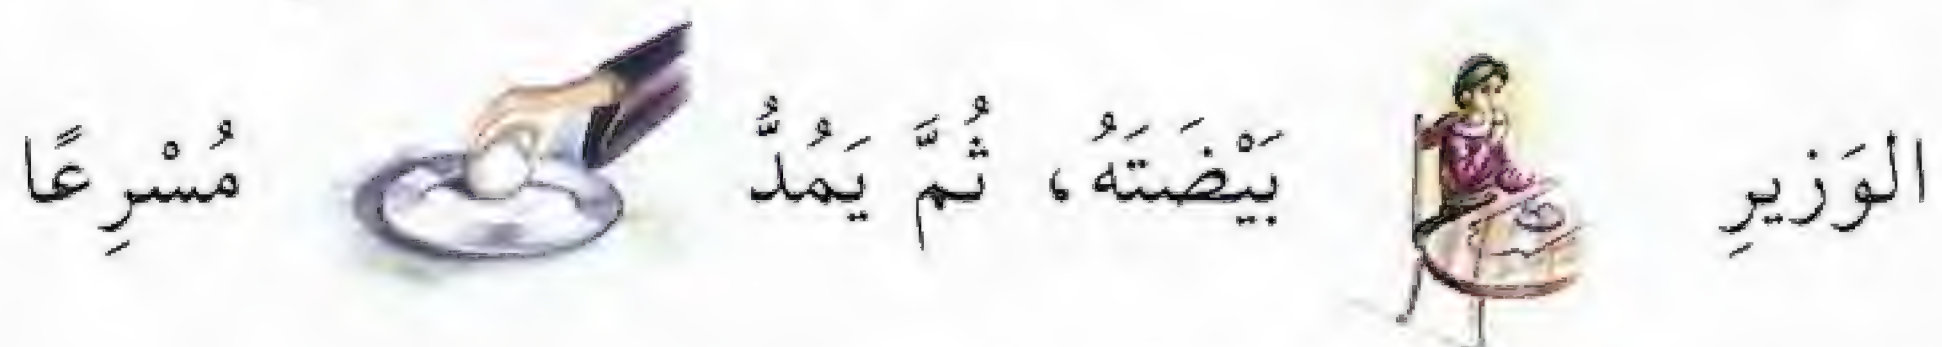 الوَزيرِ بَيْضَتَهُ، ثُمَّ يَمُدُّ مُسْرِعًا